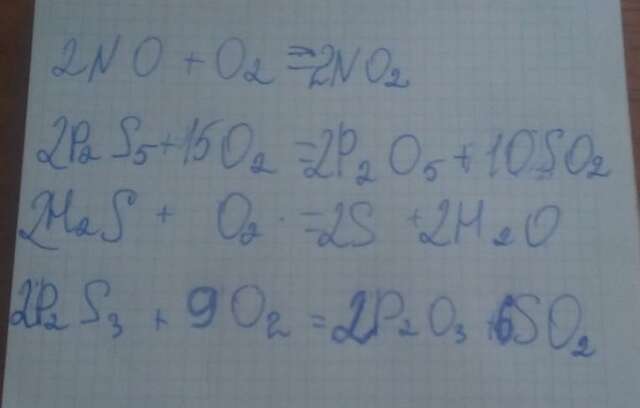 2NO + O₂ = 2NO₂
2P₂S₅ + 15O₂ = 2P₂O₅ + 10SO₂
2H₂S + O₂ = 2S + 2H₂O
2P₂S₃ + 9O₂ = 2P₂O₃ + 6SO₂